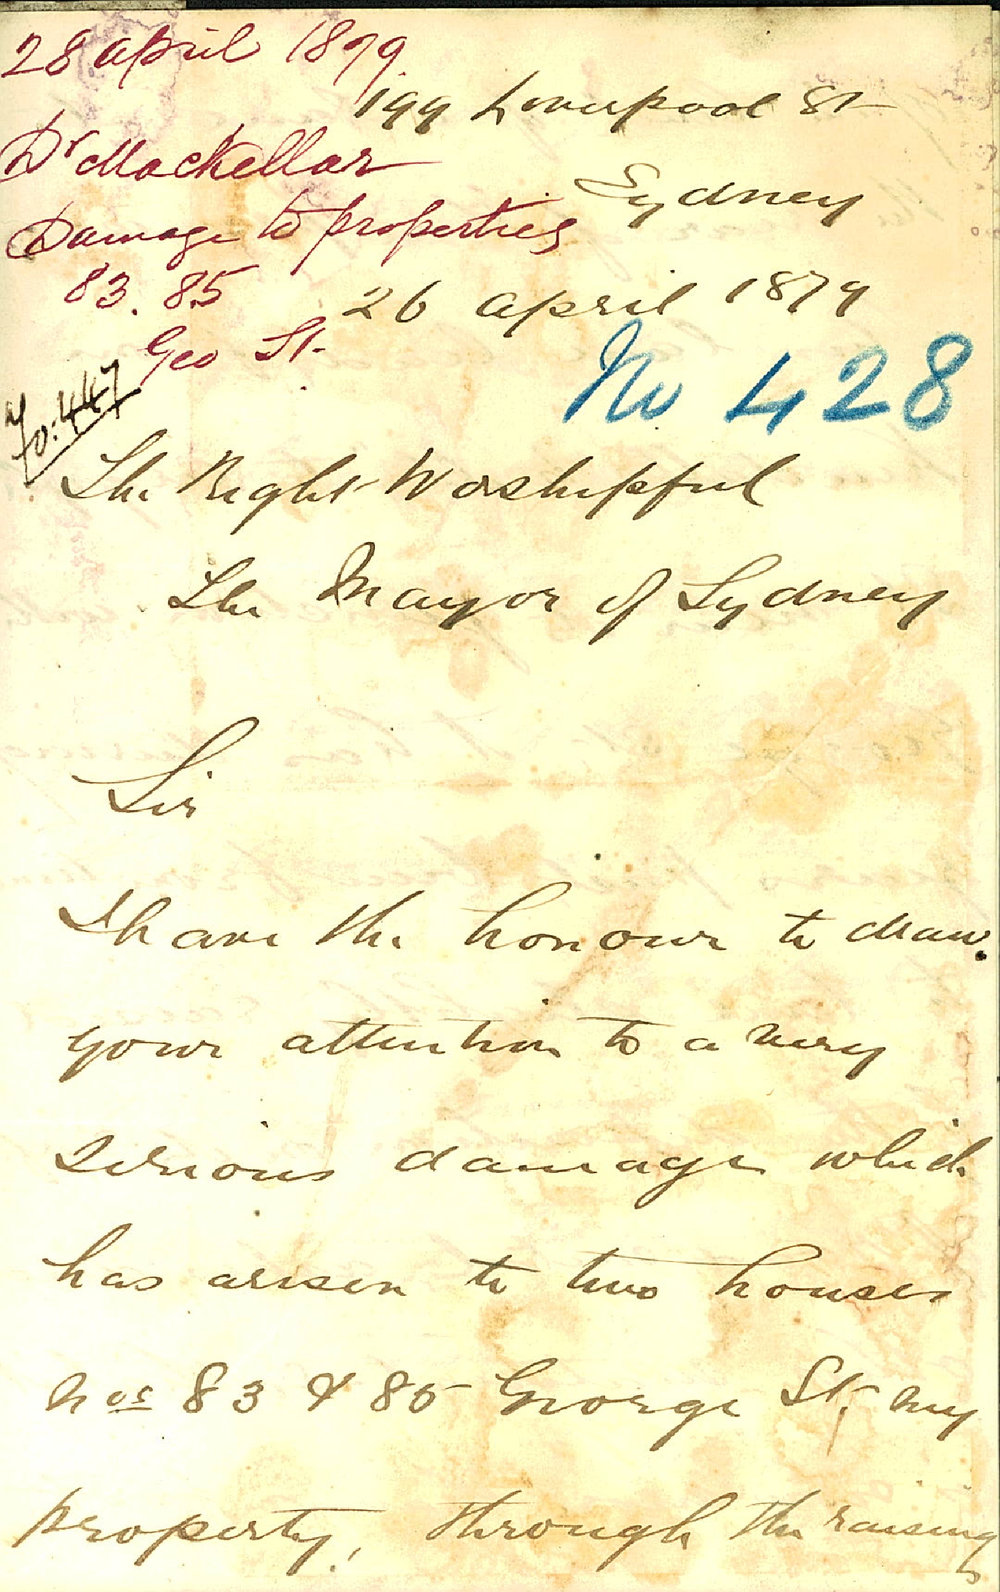 28 April 1879.
Dr Mackellar
Damage to properties
83. 85
Geo St.
199 Liverpool St
Sydney
26 April 1879
No 428
70:447
The Right Worshipful
The Mayor of Sydney
Sir
I have the honour to draw
your attention to a very
serious damage which
has arisen to two houses
Nos 83 & 85 George St, my
property, through the raising